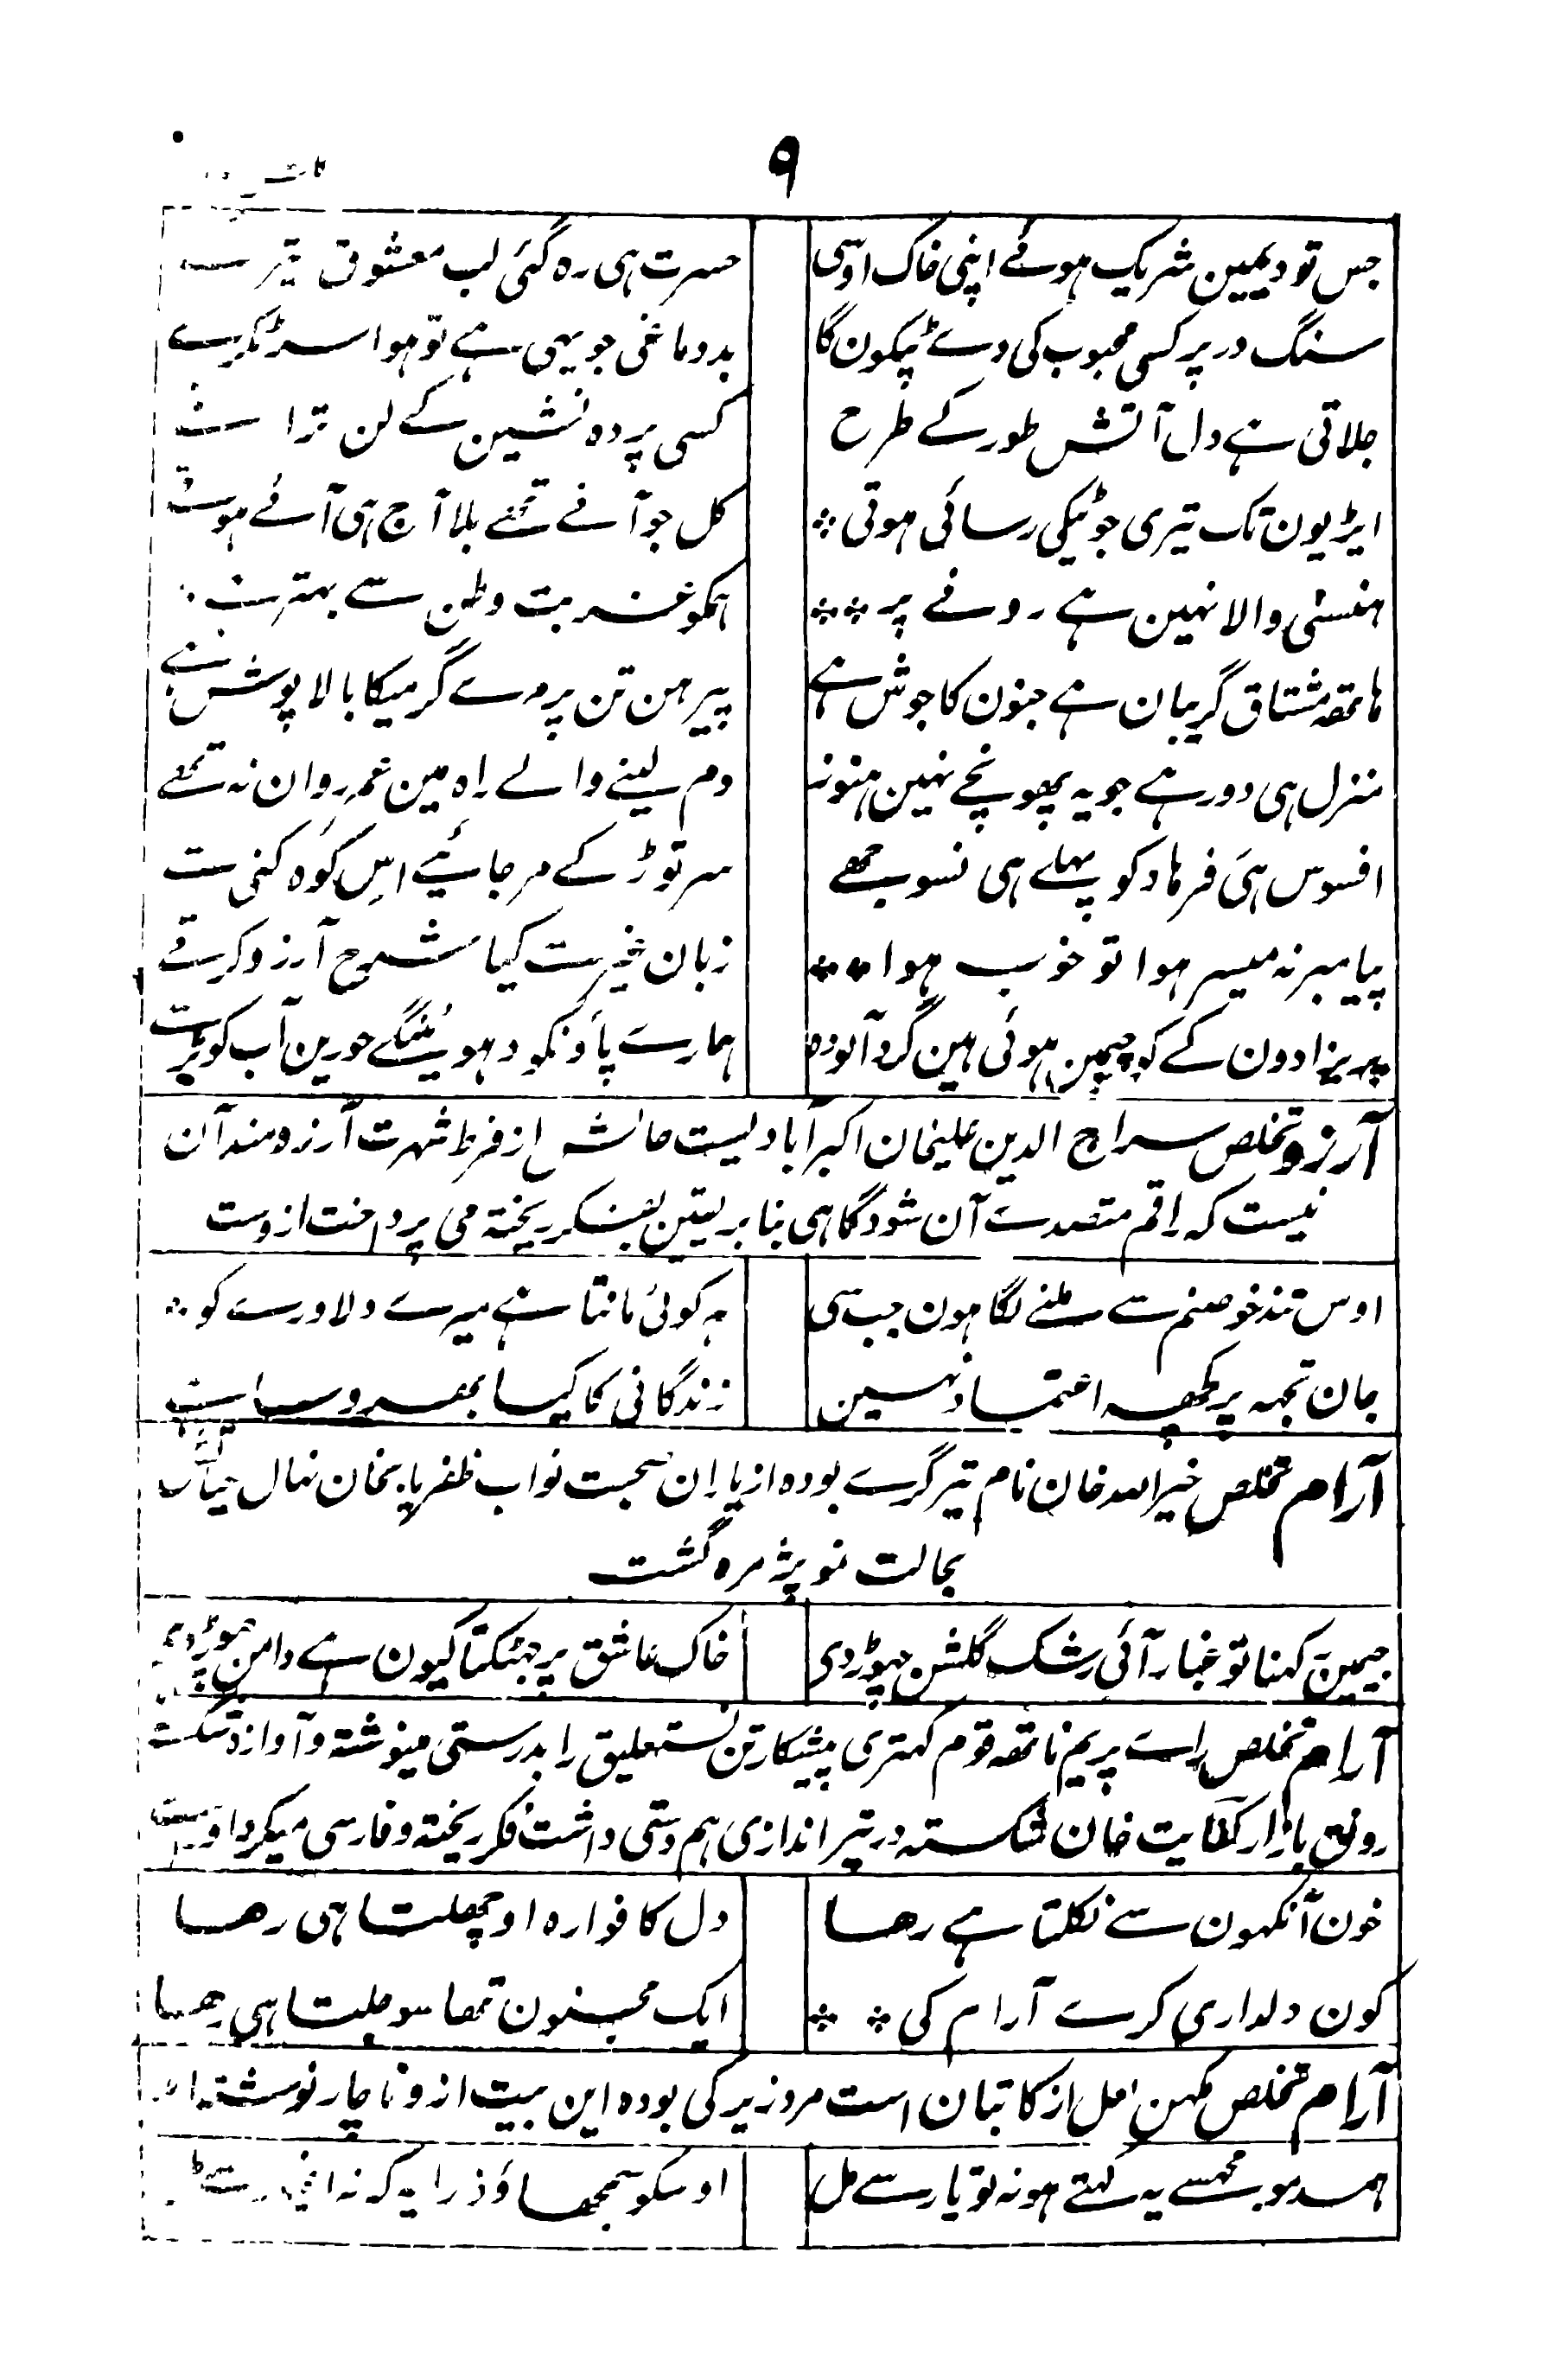 ۹
جس تودیمین شریک ہوئے اپنی خاک اوسی حسرت ہی رہ گئی لب معشوق
سنگ در پر کسی محبوب کی دے ٹپکون گا بددماغی جو یہی ہے تو ہوا
جلاتی ہے دل آتش طور کے طرح کسی پردہ نشین کے لن ترا
ایڑیون تک تیری چوٹیکی رسائی ہوتی کل جو آنے تھے بلا آج ہی آئے ہوتے
ہنسنی والا نہین ہے رونے پر ہمکو غربت وطن سے بہتر ہے
ہاتھہ مشتاق گریبان ہے جنون کا جوش ہے پیرہن تن پر مرے گرمیکا بالا پوش ہے
منزل ہی دور ہے جو یہ پھونچے نہین ہنوز دم لینے والے راہ مین عمر روان نہ تھے
افسوس ہی فرہاد کو پہلے ہی نسوجھے سر توڑ کے مر جائیے اس کوہ کنی
پیامبر نہ میسر ہوا تو خوب ہوا زبان غیر سے کیا شرح آرزو کرتے
پریزادون کے کوچیمین ہوئی ہین گرد آلودہ ہمارے پاؤنکو دہوینگے حورین آب کوثر سے
آرزو تخلص سراج الدین علیخان اکبرآبادیست حالش از فرط شہرت آرزومند آن
نیست کہ راقم متصدے آن شود گاہی بنا بر تفنن بفکر ریختہ می پرداخت ازوست
اوس تندخو صنم سے ملنے لگا ہون جب سی ہر کوئی مانتا ہے میرے دلاورے کو
جان تجہہ پر کچھہ اعتماد نہین زندگانی کا کیا بھروسا ہے
آرام تخلص خیر اللہ خان نام تیرگرے بودہ از یاران صحبت نواب ظفر یابخان نہال
بحالت نمو پژمردہ گشت
جیمین کہنا تو غبار آئی رشک گلشن چہوڑ دی خاک عاشق پر جہٹکتا کیون ہے دامن چہوڑ دی
آرام تخلص راے پریم ناتھہ قوم کہتری پیشکار تن نستعلیق را بدرستی مینوشتہ و آوازہ
رونق بازار کفایت خان شکستہ در تیر اندازی ہم دستی داشت فکر ریختہ و فارسی میکرد
خون آنکہون سے نکلتا ہے رہا دل کا فوارہ اوچھلتا ہی رہا
کون دلداری کرے آرام کی ایک مجنون تھا سو چلتا ہی رہا
آرام تخلص مکہن لعل از کاتبان است مرد زیرکی بودہ این بیت ازو ناچار نوشتہ
ہمدمو مجہسے یہ کہتے ہو نہ تو یار سے مل اوسکو سمجھاؤ ذرا یہ کہ نہ